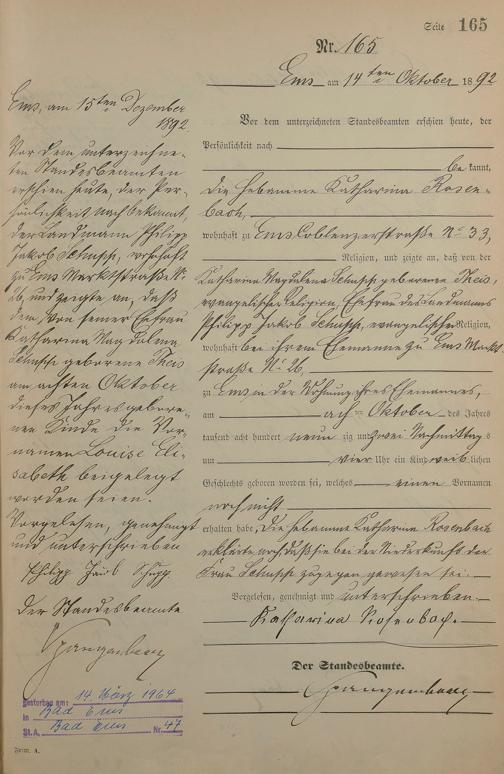 Seite 165
Nr. 165
Ems, am 14ten Oktober 1892
Vor dem unterzeichneten Standesbeamten erschien heute, der
Persönlichkeit nach
bekannt,
die Hebamme Katharina Rosen-
bach,
wohnhaft zu Ems Coblenzerstraße No 33,
Religion, und zeigte an, daß von der
Katharina Magdalena geborenen Theis,
evangelischer Religion, Ehefrau des Landmanns
Philipp Jakob evangelischer Religion,
wohnhaft bei ihrem Ehemanne zu Ems Markt-
straße No 26,
zu Ems in der Wohnung ihres Ehemannes,
am achten Oktober des Jahres
tausend acht hundert neunzig und zwei Nachmittags
um vier Uhr ein Kind weiblichen
Geschlechts geboren worden sei, welches einen Vornamen
noch nicht
erhalten habe. Die Hebamme Katharina Rosenbach
erklärte noch daß sie bei der Niederkunft der
Frau zugegen gewesen sei.
Vorgelesen, genehmigt und unterschrieben
Katharina Rosenbach.
Der Standesbeamte.
Spangenberg
Ems, am 15ten Dezember
1892
Vor dem unterzeichne-
ten Standesbeamten
erschien heute, der Per-
sönlichkeit nach bekannt,
der Landmann Philipp
Jakob wohnhaft
zu Ems Marktstraße No
26, und zeigte an, daß
dem, von seiner Ehefrau
Katharina Magdalena
geborene Theis
am achten Oktober
dieses Jahres gebore-
nen Kinde die Vor-
namen Louise Eli-
sabeth beigelegt
worden seien.
Vorgelesen, genehmigt
und unterschrieben
Philipp
Der Standesbeamte
Spangenberg
Gestorben am: 14. März 1964
in Bad Ems
St. A. Bad Ems Nr. 47
Form. A.